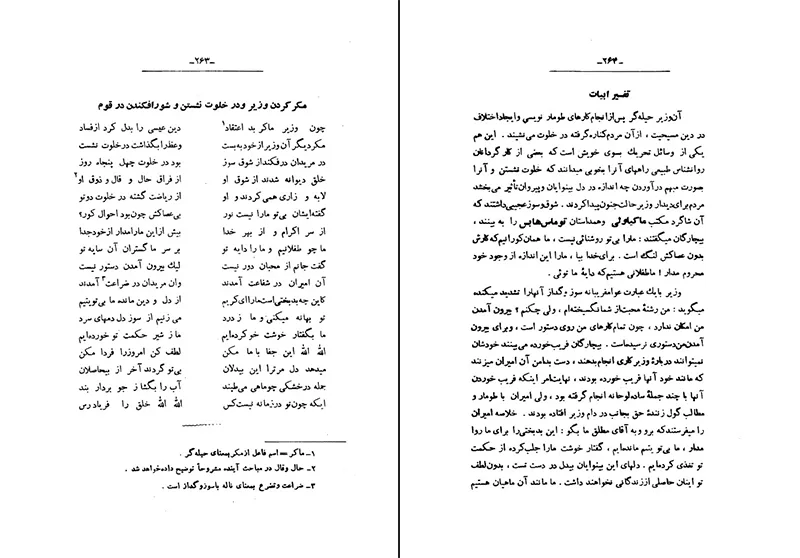 ـ۲۶۳ـ
مکر کردن وزیر و در خلوت نشستن و شور افکندن در قوم
چون وزیر ماکر بد اعتقاد۱ دین عیسی را بدل کرد از فساد
مکر دیگر آن وزیر از خود به بست وعظ را بگذاشت در خلوت نشست
در مریدان در فکند از شوق سوز بود در خلوت چهل پنجاه روز
خلق دیوانه شدند از شوق او از فراق حال و قال و ذوق او۲
لابه و زاری همی کردند و او از ریاضت گشته در خلوت دو تو
گفته ایشان بی تو ما را نیست نور بی عصاکش چون بود احوال کور؟
از سر اکرام و از بهر خدا بیش از این ما را مدار از خود جدا
ما چو طفلانیم و ما را دایه تو بر سر ما گستران آن سایه تو
گفت جانم از محبان دور نیست لیک بیرون آمدن دستور نیست
آن امیران در شفاعت آمدند وان مریدان در ضراعت۳ آمدند
کاین چه بدبختی است ما را ای کریم از دل و دین مانده ما بی تو یتیم
تو بهانه میکنی و ما ز درد می زنیم از سوز دل دمهای سرد
ما بگفتار خوشت خو کرده ایم ما ز شیر حکمت تو خورده ایم
الله الله این جفا با ما مکن لطف کن امروز را فردا مکن
میدهد دل مر ترا این بیدلان بی تو گردند آخر از بیحاصلان
جمله در خشکی چو ماهی می طپند آب را بگشا ز جو بردار بند
ایکه چون تو در زمانه نیست کس الله الله خلق را فریاد رس
۱ـ ماکر = اسم فاعل از مکر بمعنای حیله گر .
۲ـ حال وقال در مباحث آینده مشروحاً توضیح داده خواهد شد .
۳ـ ضراعت و تضرع بمعنای ناله با سوز و گداز است .
ـ۲۶۴ـ
تفسیر ابیات
آن وزیر حیله گر پس از انجام کارهای طومار نویسی و ایجاد اختلاف
در دین مسیحیت ، از آن مردم کناره گرفته در خلوت می نشیند . این هم
یکی از وسائل تحریک بسوی خویش است که بعضی از کار گردانان
روانشناس طبیعی راههای آنرا بخوبی میدانند که خلوت نشستن و آنرا
بصورت مبهم در آوردن چه اندازه در دل بینوایان و پیروان تأثیر می بخشد
مردم برای دیدار وزیر حالت جنون پیدا کردند . شوق و سوز عجیبی داشتند که
آن شاگرد مکتب ماکیاولی و همداستان توماس هابس را به بینند ،
بیچارگان میگفتند : ما را بی تو روشنائی نیست ، ما همان کورانیم که کارش
بدون عصاکش لنگ است . برای خدا بیا ، ما را این اندازه از وجود خود
محروم مدار ! ما طفلانی هستیم که دایهٔ ما توئی .
وزیر با یک عبارت عوامفریبانه سوز و گداز آنها را تشدید میکند
میگوید : من رشتهٔ محبت از شما نگسیخته ام ، ولی چکنم ؟ بیرون آمدن
من امکان ندارد ، چون تمام کارهای من روی دستور است ، و برای بیرون
آمدن من دستوری نرسیده است . بیچارگان فریب خورده می بینند خودشان
نمیتوانند در بارهٔ وزیر کاری انجام بدهند ، دست بدامن آن امیران میزنند
که مانند خود آنها فریب خورده بودند ، نهایت امر اینکه فریب خوردن
آنها با چند جملهٔ ساده لوحانه انجام گرفته بود ، ولی امیران با طومار و
مطالب گول زنندهٔ حق بجانب در دام وزیر افتاده بودند . خلاصه امیران
را میفرستند که برو و به آقای مطلق ما بگو : این بدبختی را برای ما روا
مدار ، ما بی تو یتیم مانده ایم ، گفتار خوشت ما را جلب کرده از حکمت
تو تغذی کرده ایم . دلهای این بینوایان بیدل در دست تست ، بدون لطف
تو اینان حاصلی از زندگانی نخواهند داشت . ما مانند آن ماهیان هستیم